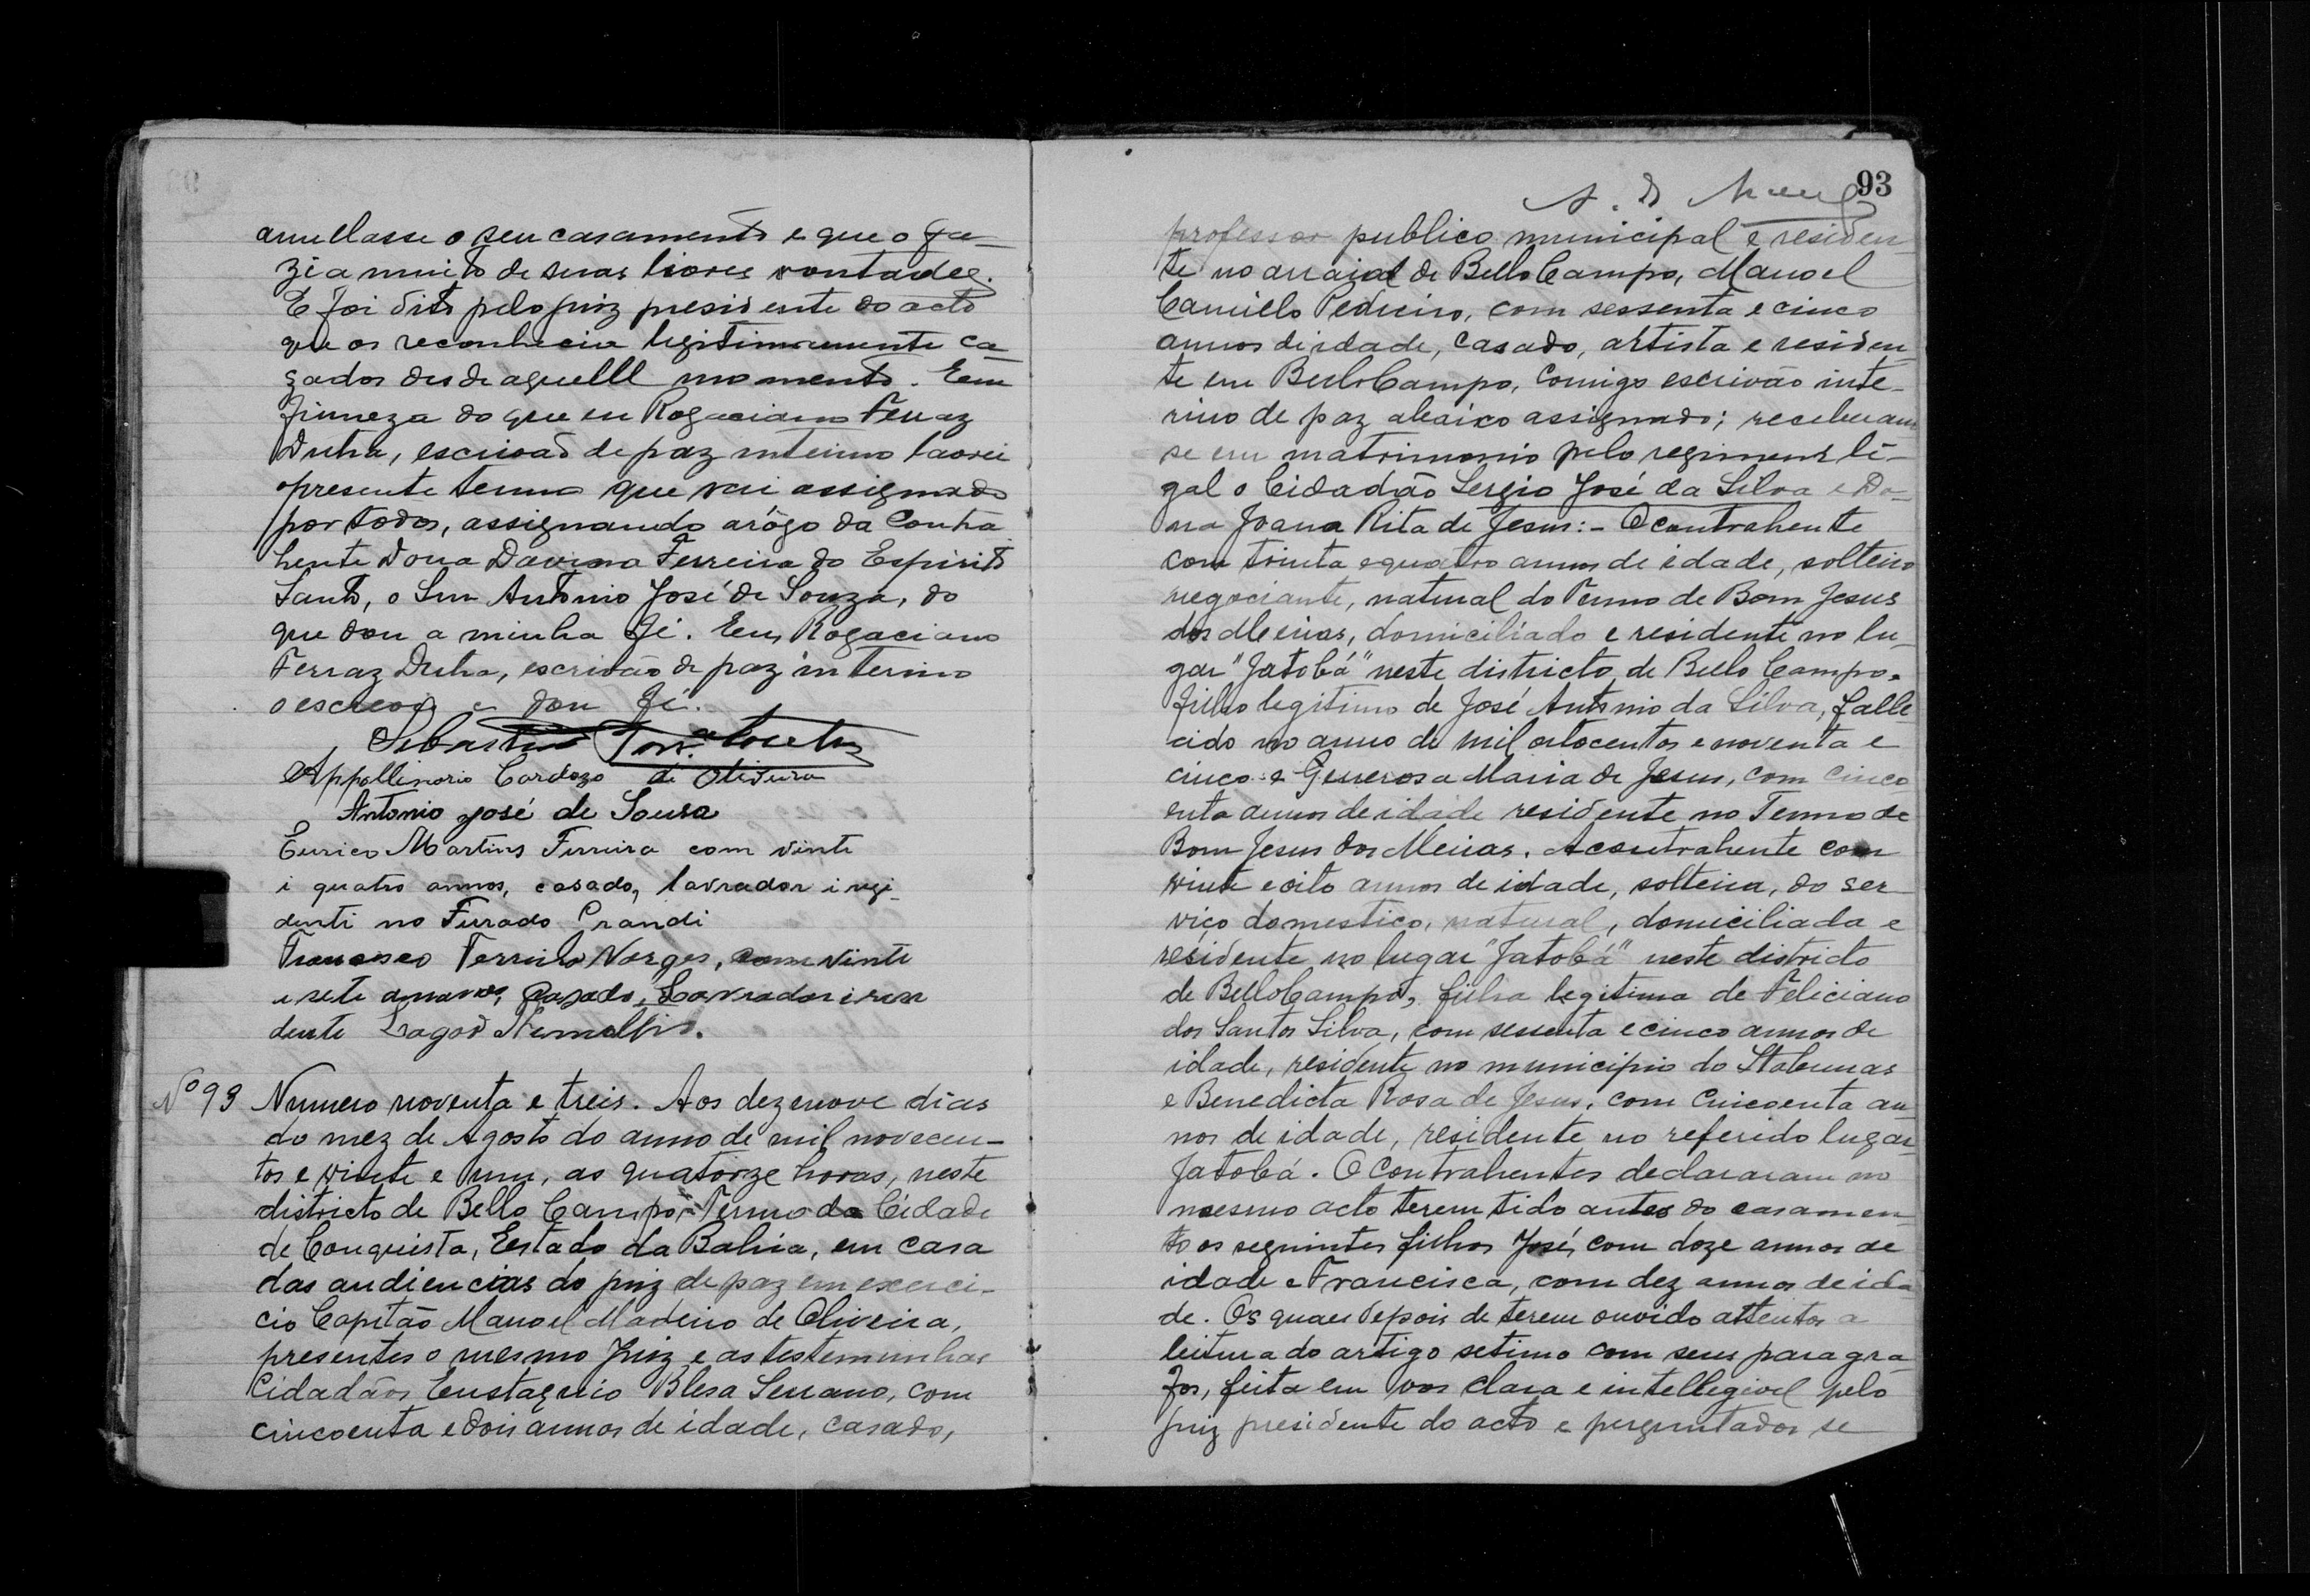 annullasse o seu casamento e que o fa-
zia muito de suas livres vontades.
E foi dito pelo juiz presidente do acto
que os reconhecia legitimamente ca-
zados desde aquelle momento. Em
firmeza do que eu Rogaciano Ferraz
Dutra, escrivão de paz interino lavrei
o presente termo que vai assignado
por todos, assignando arôgo da Contra
hente Dona Davina Ferreira do Espirito
Santo, o Snr Antonio José de Souza, do
que dou a minha fé. Eu, Rogaciano
Ferraz Dutra, escrivão de paz interino
o escrevy e dou fé.
Sebastião
Appollinario Cardozo di Olivura
Antonio José de Sousa
Eurico Martins Ferreira com vinte
i quatro annos, casado, lavrador i rezi-
denti no Furado Grandi
Francisco Ferreira Vorges, com vinte
e sete annos, Casado, Lavrador i resi
dente Lagoa
Nº 93 Numero noventa e treis. Aos dezenove dias
do mez de Agosto do anno de mil novecen-
tos e vinte e um, as quatorze horas, neste
districto de Bello Campo, Termo da Cidade
de Conquista, Estado da Bahia, em casa
das audiencias do juiz de paz em exerci-
cio Capitão Manoel Madeiro de Oliveira,
presentes o mesmo Juiz e as testemunhas
Cidadãos Eustaquio Blesa Serrano, com
cincoenta e dois annos de idade, casado,
93
professor publico municipal e residen-
te no arraial de Bello Campo, Manoel
Camillo Pedreiro, com sessenta e cinco
annos de idade, casado, artista e residen-
te em Bello Campo, Comigo escrivão inte-
rino de paz abaixo assignado; receberam
se em matrimonio pelo regimen le-
gal o Cidadão Sergio José da Silva e Do-
na Joana Rita de Jesus:- O contrahente
com trinta e quatro annos de idade, solteiro
negociante, natural do Termo de Bom Jesus
dos Meiras, domiciliado e residente no lu-
gar "Jatobá" neste districto de Bello Campo.
filho legitimo de José Antonio da Silva, falle
cido no anno de mil oitocentos e noventa e
cinco e Generosa Maria de Jesus, com cinco
enta annos de idade residente no Termo de
Bom Jesus dos Meiras. A contrahente com
vinte e oito annos de idade, solteira, do ser
viço domestico, natural, domiciliada e
residente no lugar "Jatobá" neste districto
de Bello Campo, filha legitima de Feliciano
dos Santos Silva, com sessenta e cinco annos de
idade, residente no municipio do Itabunas
e Benedicta Rosa de Jesus, com Cincoenta an-
nos de idade, residente no referido lugar
Jatobá. O Contrahentes declararam no
mesmo acto terem tido antes do casamen-
to os seguintes filhos José, com doze annos de
idade e Francisca, com dez annos de ida
de. Os quaes depois de terem ouvido attentos a
leitura do artigo setimo com seus paragra
fos, feita em vos clara e intellegivel pelo
juiz presidente do acto e perguntados se